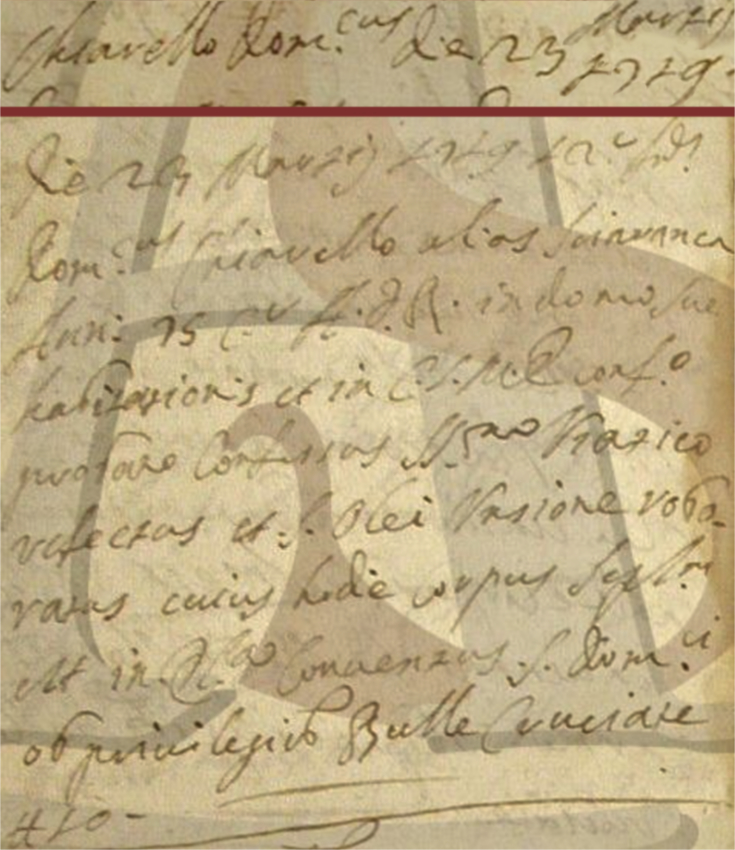 Chiavello Dom.cus Die 23 Martij
1719.
Die 23 Martij 1719 12.e Ind.
Dom.cus Chiavello alias Sciavanca
Ann: 75 C.r A. D. R. in domo sue
habitationis et in C. S. M. E. conf.o
probato Confessus SS.mo Viatico
refectus et S. Olei Untione robo-
ratus cuius hodie corpus
est in Conventus S. Dom.ci
ob privilegio Bulle Cruciate